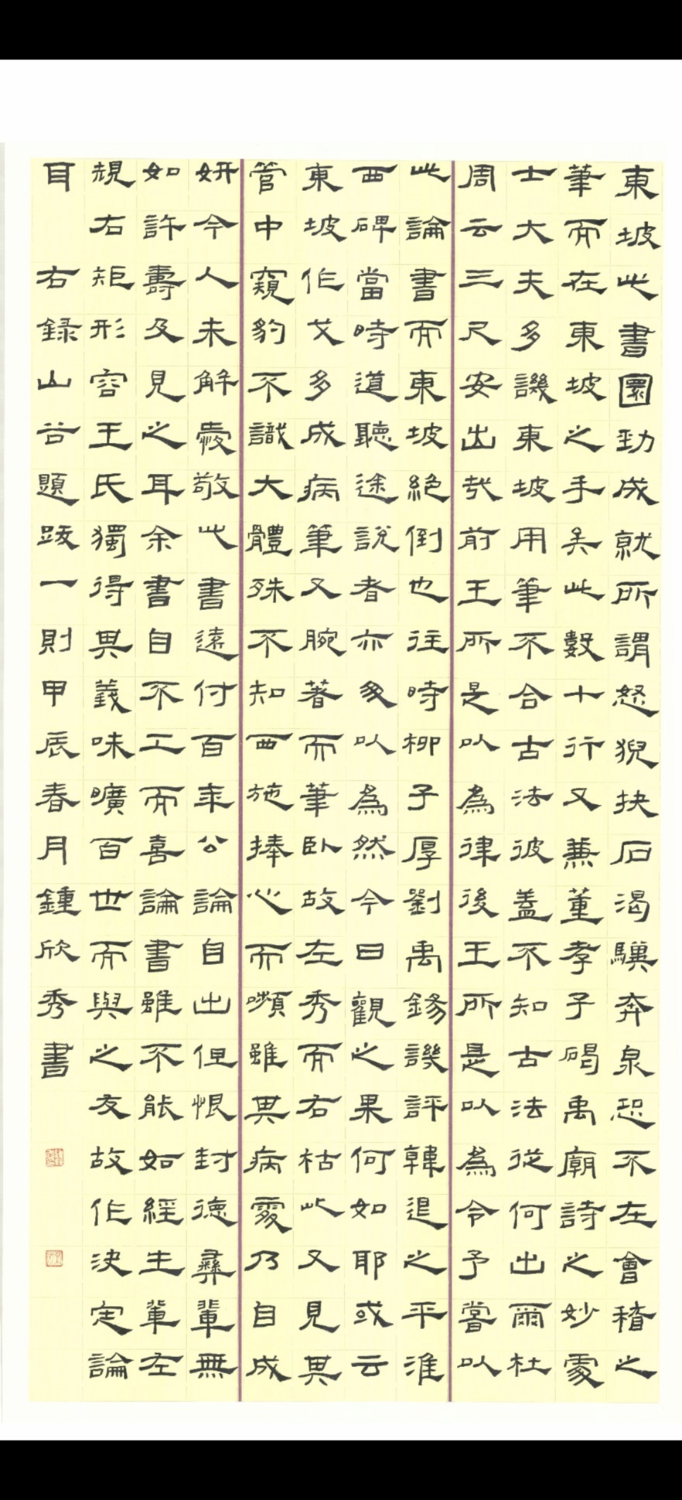 東坡此書圜勁成就所謂怒猊抉石渴驥奔泉恐不在會稽之
筆而在東坡之手矣此數十行又兼董孝子碣禹廟詩之妙處
士大夫多譏東坡用筆不合古法彼蓋不知古法從何出爾杜
周云三尺安出哉前王所是以為律後王所是以為令予嘗以
此論書而東坡絕倒也往時柳子厚劉禹錫譏評韓退之平淮
西碑當時道聽途說者亦多以為然今日觀之果何如耶或云
東坡作戈多成病筆又腕著而筆臥故左秀而右枯此又見其
管中窺豹不識大體殊不知西施捧心而嚬雖其病處乃自成
妍今人未解愛敬此書遠付百年公論自出但恨封德彝輩無
如許壽及見之耳余書自不工而喜論書雖不能如經生輩左
規右矩形容王氏獨得其義味曠百世而與之友故作決定論
耳 右錄山谷題跋一則甲辰春月鍾欣秀書